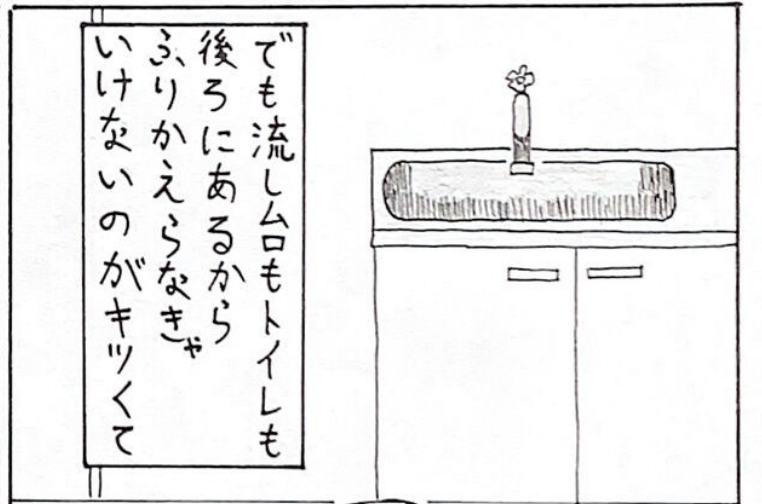 でも流し台もトイレも
後ろにあるから
ふりかえらなきゃ
いけないのがキツくて